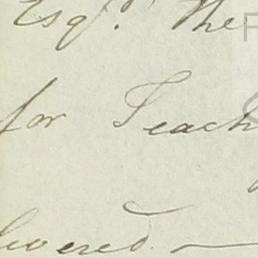 Esqr. The
for Teach
livered —